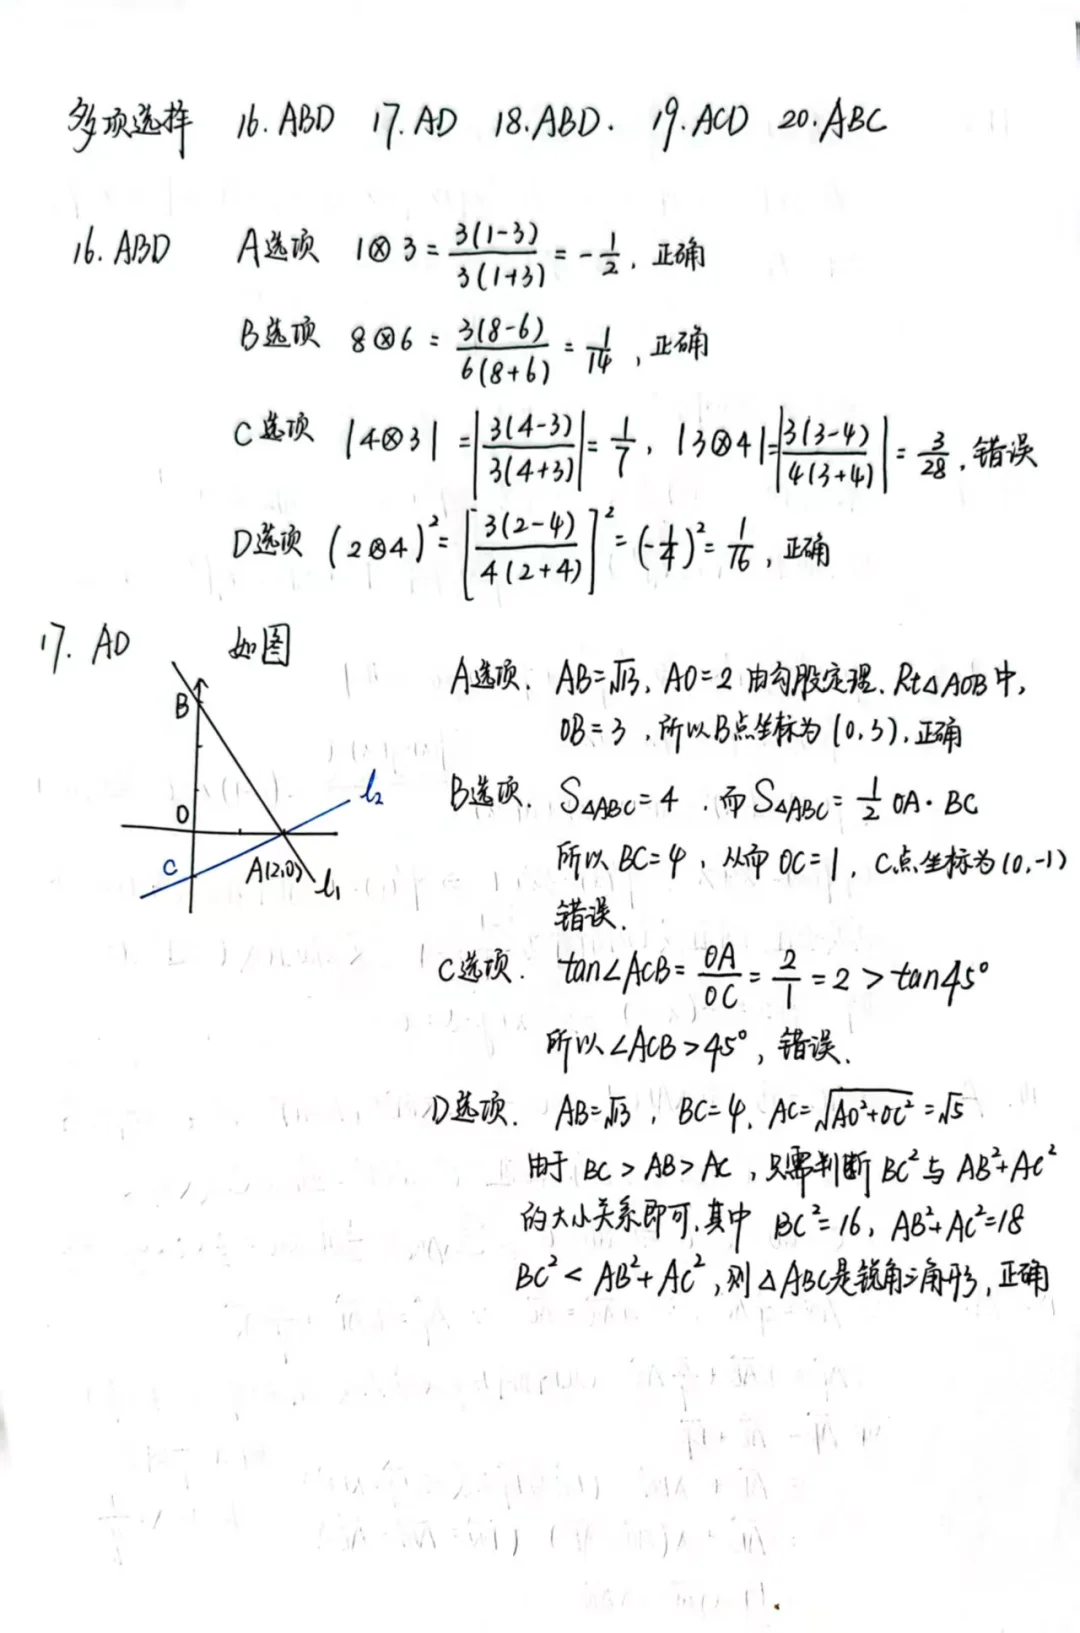 多项选择 16. ABD 17. AD 18. ABD. 19. ACD 20. ABC
16. ABD A选项 1⊗3 = 3(1-3)/3(1+3) = -1/2, 正确
B选项 8⊗6 = 3(8-6)/6(8+6) = 1/14, 正确
C选项 |4⊗3| = |3(4-3)/3(4+3)| = 1/7, |3⊗4| = |3(3-4)/4(3+4)| = 3/28, 错误
D选项 (2⊗4)² = [3(2-4)/4(2+4)]² = (-1/4)² = 1/16, 正确
17. AD 如图
B
O
C
A(2,0)
l₂
l₁
A选项. AB=√13, AO=2 由勾股定理. Rt△AOB中,
OB=3, 所以B点坐标为(0,3), 正确
B选项. S△ABC=4. 而S△ABC= 1/2 OA·BC
所以BC=4, 从而OC=1, C点坐标为(0,-1)
错误.
C选项. tan∠ACB= OA/OC = 2/1 = 2 > tan45°
所以∠ACB>45°, 错误.
D选项. AB=√13, BC=4, AC=√(AO²+OC²)=√5
由于BC>AB>AC, 只需判断BC²与AB²+AC²
的大小关系即可, 其中BC²=16, AB²+AC²=18
BC²<AB²+AC², 则△ABC是锐角三角形, 正确